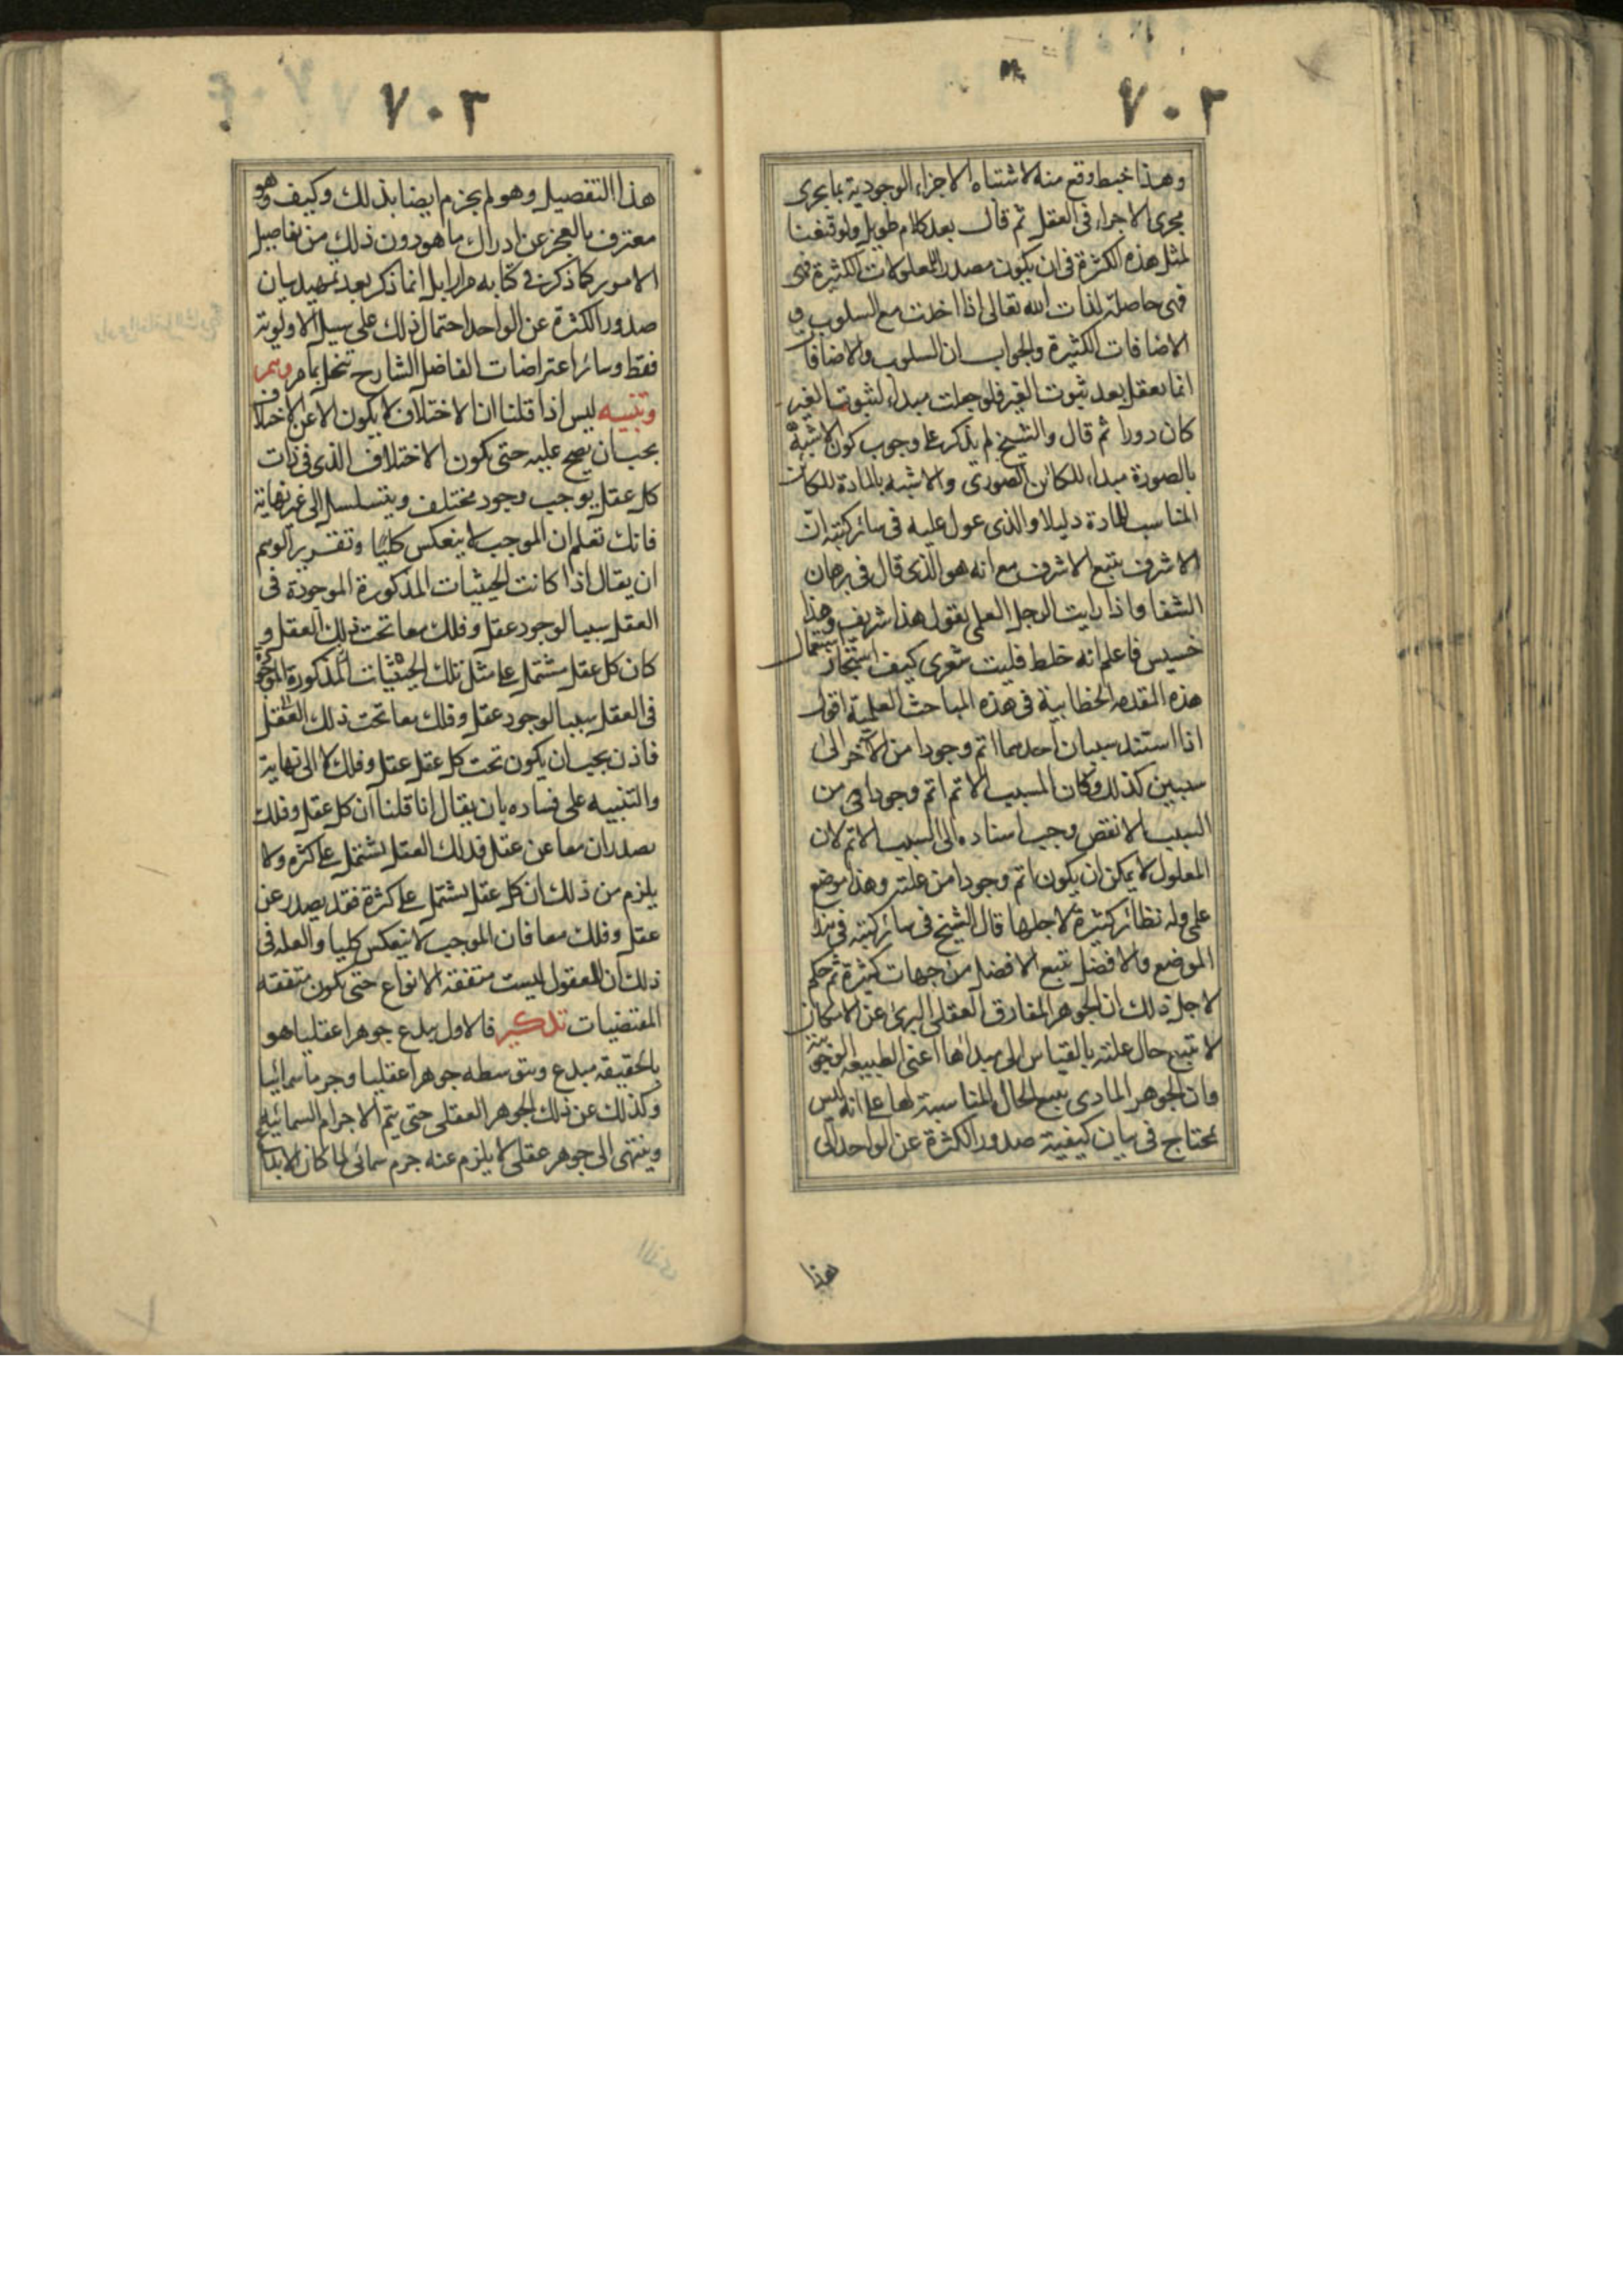 ٧٠٢
وهذا خبط وقع منه لاشتباه الاجزاء الوجودية بما يجرى
مجرى الاجزاء فى العقل ثم قال بعد كلام طويل ولو قنعنا
لمثل هذه الكثرة فى ان يكون مصدرا للمعلولات الكثيرة فهى
فهى حاصلة لذات الله تعالى اذا اخذت مع السلوب و
الاضافات الكثيرة والجواب ان السلوب والاضافات
انما يعقل بعد ثبوت الغير فلو جعلت مبداء لثبوت الغير
كان دورا ثم قال والشيخ لم يذكر على وجوب كون الاشبه
بالصورة مبداء للكائن الصورى والاشبه بالمادة للكائن
المناسب للمادة دليلا والذى عول عليه فى سائر كتبه ان
الاشرف يتبع الاشرف مع انه هو الذى قال فى برهان
الشفا واذا رايت الرجل العلمى يقول هذا شريف وهذا
خسيس فاعلم انه خلط فليت شعرى كيف استجاز استعمال
هذه المقدمه الخطابية فى هذه المباحث العلمية اقول
اذا استند سببان احدهما اتم وجودا من الآخر الى
سببين كذلك وكان المسبب الاتم اتم وجودا من
السبب الانقص وجب اسناده الى السبب الاتم لان
المعلول لا يمكن ان يكون اتم وجودا من علته وهذا موضع
علمى وله نظائر كثيرة لاجلها قال الشيخ فى سائر كتبه فى هذا
الموضع والافضل يتبع الافضل من جهات كثيرة ثم حكم
لاجل ذلك ان الجوهر المفارق العقلى البرئ عن الامكان
لا تتبع حال علته بالقياس الى مبداها اعنى الطبيعه الوجودية
وان الجوهر المادى يتبع الحال المناسبة لها على انه ليس
محتاج فى بيان كيفية صدور الكثرة عن الواحد الى
هذا
٧٠٣
هذا التفصيل وهو لم يجزم ايضا بذلك وكيف وهو
معترف بالعجز عن ادراك ما هو دون ذلك من تفاصيل
الامور كما ذكره فى كتابه مرارا بل انما ذكر بعد تمهيد بيان
صدور الكثرة عن الواحد احتمال ذلك على سبيل الاولوية
فقط وسائر اعتراضات الفاضل الشارح تنحل بما مر وهم
وتنبيه ليس اذا قلنا ان الاختلاف لا يكون الا عن الاختلاف
يجب ان يصح عليه حتى يكون الاختلاف الذى فى ذات
كل عقل يوجب وجود مختلف ويتسلسل الى غير نهاية
فانك تعلم ان الموجب لا ينعكس كليا وتقرير الوهم
ان يقال اذا كانت الحيثيات المذكورة الموجودة فى
العقل سببا لوجود عقل وفلك معا تحت ذلك العقل و
كان كل عقل مشتمل على مثل تلك الحيثيات المذكورة الموجودة
فى العقل سببا لوجود عقل وفلك معا تحت ذلك العقل
فاذن يجب ان يكون تحت كل عقل عقل وفلك لا الى نهاية
والتنبيه على فساده بان يقال انا قلنا ان كل عقل وفلك
يصدران معا عن عقل فذلك العقل يشتمل على كثره ولا
يلزم من ذلك ان كل عقل يشتمل على كثرة فقد يصدر عن
عقل وفلك معا فان الموجب لا ينعكس كليا والعله فى
ذلك ان العقول ليست متفقه الانواع حتى يكون متفقه
المقتضيات تذكير فالاول يبدع جوهرا عقليا هو
بالحقيقه مبدع وبتوسطه جوهرا عقليا وجرما سمائيا
وكذلك عن ذلك الجوهر العقلى حتى يتم الاجرام السمائية
وينتهى الى جوهر عقلى لا يلزم عنه جرم سمائى لما كان الابداع